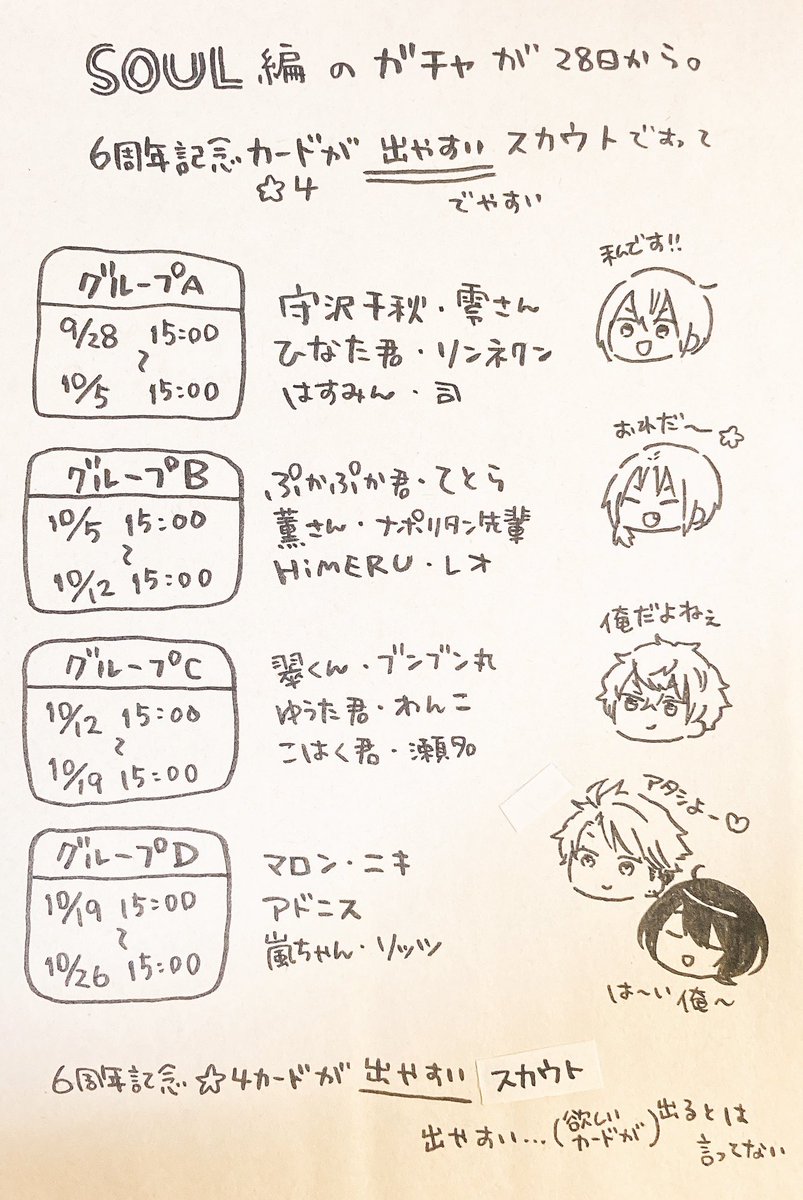 SOUL編のガチャが28日から。
6周年記念カードが出やすいスカウトですって
☆4
でやすい
グループA
9/28 15:00
〜
10/5 15:00
守沢千秋・零さん
ひなた君・リンネクン
はすみん・司
私です!!
グループB
10/5 15:00
〜
10/12 15:00
ぷかぷか君・てとら
薫さん・ナポリタン先輩
HiMERU・レオ
おれだ〜☆
グループC
10/12 15:00
〜
10/19 15:00
翠くん・ブンブン丸
ゆうた君・わんこ
こはく君・瀬名
俺だよねぇ
グループD
10/19 15:00
〜
10/26 15:00
マロン・ニキ
アドニス
嵐ちゃん・リッツ
アタシよー♡
は〜い俺〜
6周年記念☆4カードが出やすいスカウト
出やすい…(欲しいカードが)出るとは
言ってない